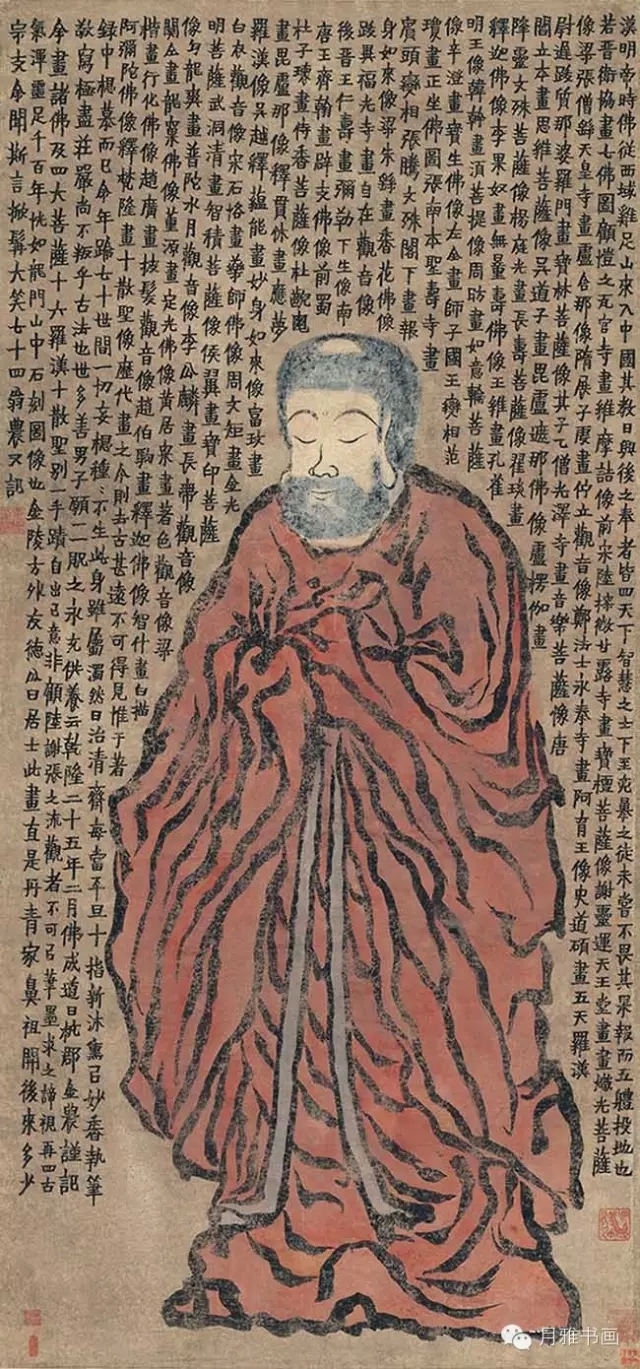 漢明帝時佛從西域雞足山來入中國其教日興後之奉者皆四天下智慧之士下至兇暴之徒未嘗不畏其果報而五體投地也
若晉衛協畫七佛圖顧愷之瓦官寺畫維摩詰像前宋陸探微甘露寺畫寶檀菩薩像謝靈運天王堂畫畫熾光菩薩
像梁張僧繇天皇寺畫盧舍那像隋展子虔畫佇立觀音像鄭法士永泰寺畫阿育王像史道碩畫五天羅漢
尉遲跋質那婆羅門畫寶林菩薩像其子乙僧光澤寺畫音樂菩薩像唐
閻立本畫思維菩薩像吳道子畫毘盧遮那佛像盧楞伽畫
降靈文殊菩薩像楊庭光畫長壽菩薩像翟琰畫
釋迦佛像李果奴畫無量壽佛像王維畫孔雀
明王像韓幹畫須菩提像周昉畫如意輪菩薩
像辛澄畫寶生佛像左全畫師子國王變相范
瓊畫正坐佛圖張南本聖壽寺畫
賓頭變相張騰文殊閣下畫報
身如來像梁朱繇畫香花佛像
跋異福光寺畫自在觀音像
後晉王仁壽畫彌勒下生像南
唐王齊翰畫辟支佛像前蜀
杜子瓌畫侍香菩薩像杜齯龜
畫毘盧那像釋貫休畫應夢
羅漢像吳越釋蘊能畫妙身如來像富玫畫
白衣觀音像宋石恪畫藥師佛像周文矩畫金光
明菩薩武洞清畫智積菩薩像侯翼畫寶印菩薩
像勾龍爽畫普陀水月觀音像李公麟畫長帶觀音像
關仝畫龍窠佛像董源畫定光佛像黃居寀畫著色觀音像梁
楷畫行化佛像趙廣畫披髮觀音像趙伯駒畫釋迦佛像智什畫白描
阿彌陀佛像釋梵隆畫十散聖像歷代畫之今則去古甚遠不可得見惟于著
錄中想慕而已今年踰七十世間一切妄想種〻不生此身雖屬濁然日治清齋每當平旦十指新沐熏以妙香執筆
敬寫極盡莊嚴尚不叛乎古法也世多善男子願二貺之永充供養云乾隆二十五年二月佛成道日杭郡金農謹記
余畫諸佛及四大菩薩十六羅漢十散聖別一手蹟自出己意非顧陸謝張之流觀者不可以筆墨求之諦視再四古
氣渾噩足千百年恍如龍門山中石刻圖像也金陵方外友德公曰居士此畫直是丹青家鼻祖開後來多少
宗支余聞斯言掀髯大笑七十四翁農又記
月雅书画